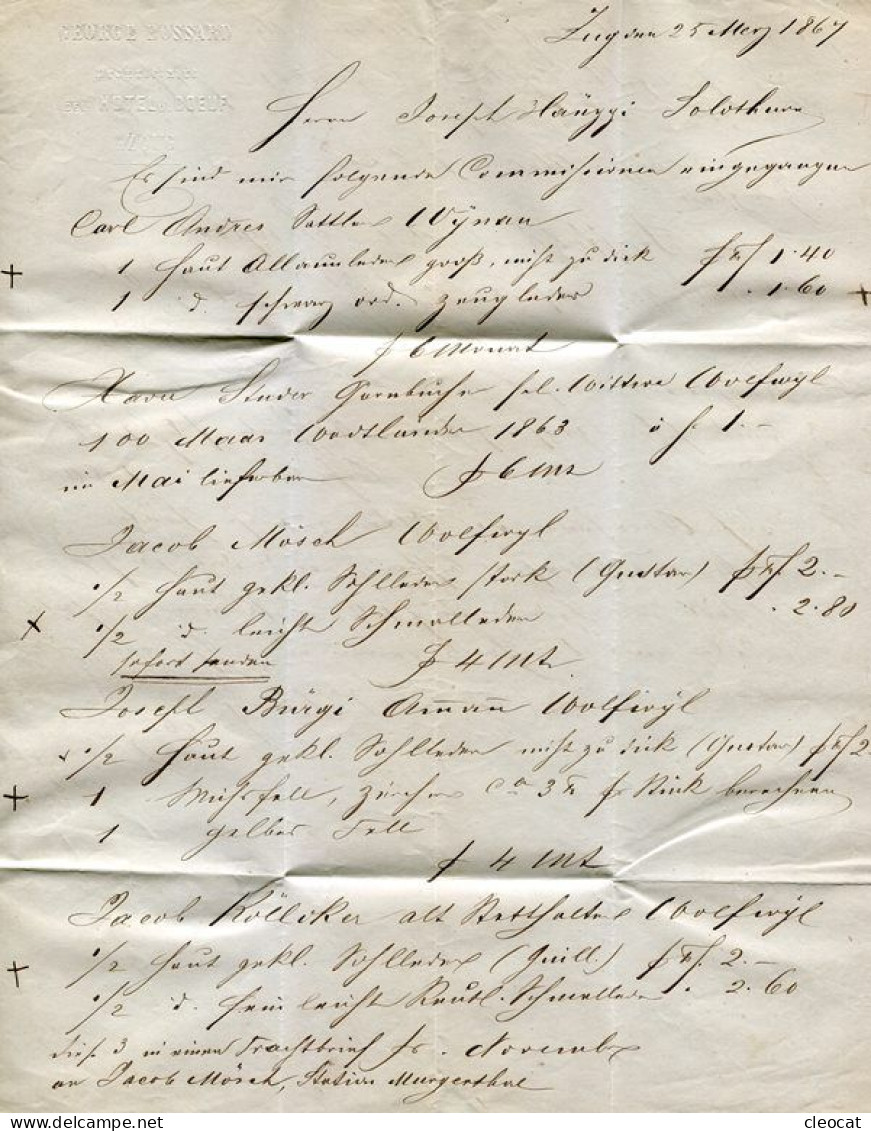 GEORGE BOSSARD
HOTEL DU BOEUF
Zug den 25 Merz 1867
Herrn Josef Hänggi Solothurn
Es sind mir folgende Commissionen eingegangen
Carl Andres Sattler Wÿnau
1 Haut Allaunleder groß, nicht zu dick p ℔ f 1.40
1 d. schwarz ord. Zeugleder . 1.60
p 6 Monat
Studer sel. Wittwe Wolfwÿl
100 Maas Waadtländer 1863 à f. 1.-
im Mai lieferbar p 6 Mt
Jacob Mösch Wolfwyl
1/2 Haut gekl. Sohlleder stark (Gustav) p ℔ f. 2.-
1/2 d. leicht Schmalleder . 2.80
sofort senden p 4 Mt.
Josef Bürgi Amañ Wolfwÿl
1/2 Haut gekl. Sohlleder nicht zu dick (Gustav) p ℔ f 2.
1 Zürcher ca 3 ℔ pr Stück berechnen
1 gelbes Fell
p 4 Mt
Jacob Kölliker alt Statthalter Wolfwÿl
1/2 Haut gekl. Sohlleder (Guill.) p ℔ f. 2.-
1/2 d. fein leicht Reutl. Schmalleder . 2.60
diese 3 in einen Frachtbrief pr. November
an Jacob Mösch, Station Murgenthal
cleocat